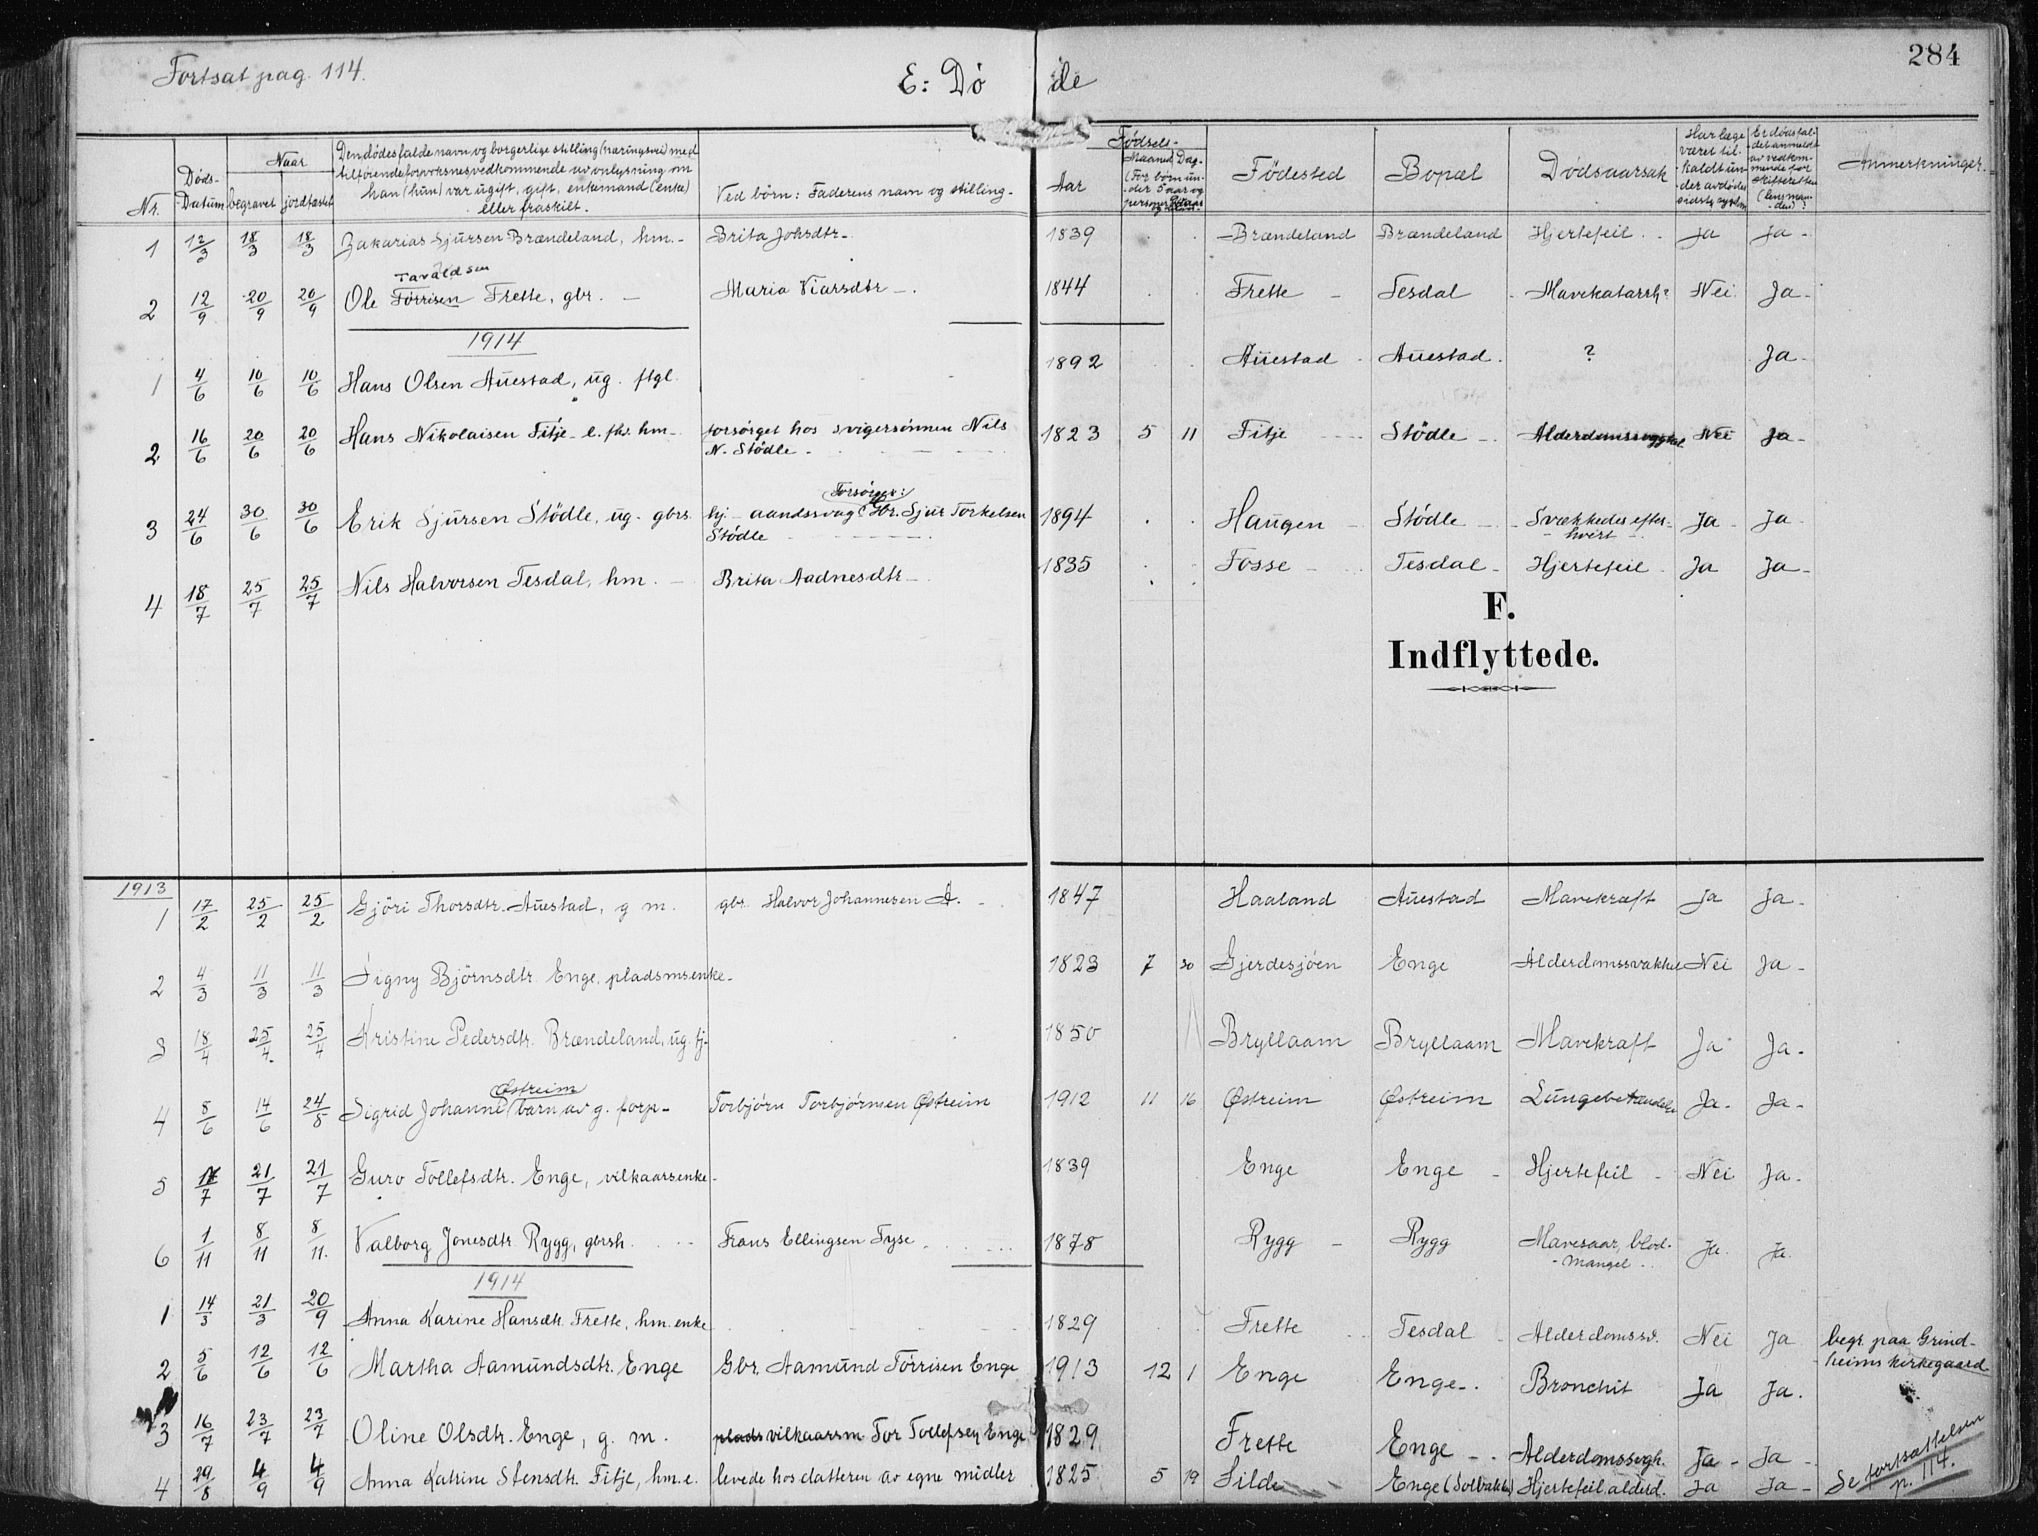 284
Fortsat pag. 114.
E: Døde
Nr.
Døds-Datum
Naar
begravet
jordfæstet
Den dødes fulde navn og borgerlige stilling (næringsvei) med
tilføiende for voksnes vedkommende av oplysning om
han (hun) var ugift, gift, enkemand (enke)
eller fraskilt.
Ved børn: Faderens navn og stilling.
Fødsels-
Aar
Maaned
Dag
(For børn un-
der 5 aar og
Fødested
Bopæl
Dødsaarsak
Har læge
været til-
kaldt un-
der avdødes
sidste sygdom
Er dødsfal-
det anmeldt
av vedkom-
mende for
skifteretten
(lensman-
den)?
Anmerkninger.
1 12/3 18/3 18/3 Zakarias Sjursen Brændeland, hm. - Brita Johsdtr - 1839 Brændeland Brændeland Hjertefeil - Ja Ja -
Tavaldsen
2 12/9 20/9 20/9 Ole Tørrisen Frette, gbr. - Maria Viarsdtr - 1844 Frette - Tesdal Mavekatarrh? Nei Ja -
1914
1 4/6 10/6 10/6 Hans Olsen Auestad, ug. ftgl. 1892 Auestad Auestad ? Ja -
2 16/6 20/6 20/6 Hans Nikolaisen Fitje - e. fhv. hm - forsørget hos svigersønnen Nils 1823 5 11 Fitje Stødle - Nei Ja -
N. Stødle -
Forsørger:
3 24/6 30/6 30/6 Erik Sjursen Stødle, ug. gbrs. hj - aandssvag (Gbr. Sjur Torkelsen 1894 Haugen Stødle - Svækkedes efter- Ja - Ja -
Stødle hvert -
4 18/7 25/7 25/7 Nils Halvorsen Tesdal, hm. - Brita Aadnesdtr - 1835 Fosse - Tesdal - Hjertefeil Ja Ja -
F.
Indflyttede.
1913
1 17/2 25/2 25/2 Gjøri Thorsdtr. Auestad, g m. gbr. Halvor Johannesen A. 1847 Haaland Auestad Mavekræft Ja Ja -
2 4/3 11/3 11/3 Signy Bjørnsdtr. Enge, pladsmsenke - 1823 7 30 Gjerdesjøen Enge Alderdomssvakhet Nei Ja -
3 18/4 25/4 25/4 Kristine Pedersdtr. Brændeland, ug. tj - 1850 Bryllaam Bryllaam Mavekraft Ja Ja -
Østreim
4 8/6 14/6 24/8 Sigrid Johanne (barn av g. forp - Torbjørn Torbjørnsen Østreim 1912 11 16 Østreim Østreim Lungebetændelse Ja - Ja -
5 21/7 21/7 Guro Tollefsdtr. Enge, vilkaarsenke - 1839 Enge Enge - Hjertefeil - Nei Ja -
6 1/11 8/11 8/11. Valborg Jonesdtr. Rygg, gbrsh. Frans Ellingsen Tyse. 1878 Rygg - Rygg Mavesaar, blod- Ja Ja.
- mangel -
1914
1 14/3 21/3 20/9 Anna Karine Hansdtr. Frette, hm. enke 1829 Frette Tesdal Alderdomssv. Nei Ja begr. paa Grind-
heims kirkegaard
2 5/6 12/6 12/6 Martha Aamundsdtr. Enge Gbr. Aamund Tørrisen Enge 1913 12 1 Enge Enge - Bronchit Ja Ja.
3 16/7 23/7 23/7 Oline Olsdtr. Enge, g. m. plads vilkaarsm Tor Tollefsen Enge 1829 Frette Enge - Ja - Ja -
4 29/8 4/9 4/9 Anna Katrine Stensdtr. Fitje, hm. e. levede hos datteren av egne midler 1825 5 19 Silde Enge (Solbakken) Hjertefeil alderd. Ja Ja - Se fortsættelsen
p. 114.